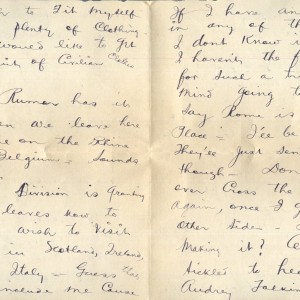 to Fit Myself
plenty of Clothing.
would like to get
of Civilian
Rumor has it
we are leave here
on the Rhine
Belgium - Sounds
Division is Granting
leaves now to
wish to Visit
in Scotland, Ireland,
Italy - Guess
me Cause
If I have an
in any of th
I dont Know
I haven't the f
for Such a
Mind going t
Say Rome is
Place - I'll be
They'll Just Sen
though - Don
ever Cross the
again, once I g
Other Side -
Making it?
tickled to he
Audrey Talkin